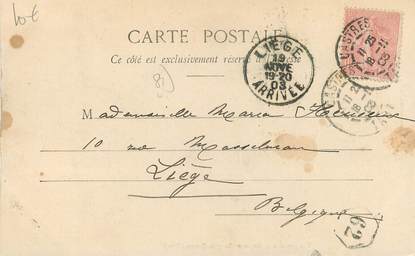 10 €
CARTE POSTALE
Ce côté est exclusivement réservé à l'adresse
81
LIEGE
19
NOVE
19-20
03
ARRIVÉE
CASTRES
Mademoiselle Maria
10 rue
Liège
Belgique
62